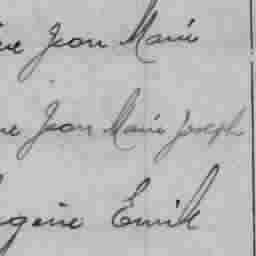 Jean Marie
Jean Marie Joseph
Eugène Emile